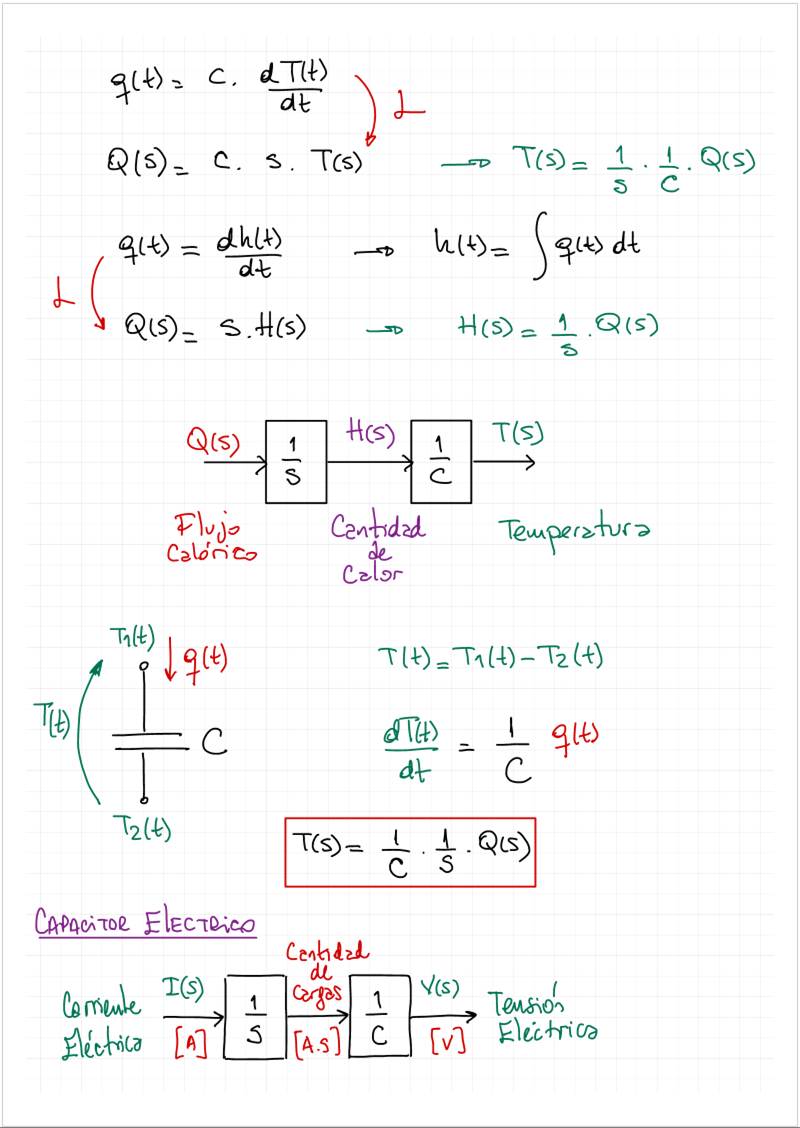 q(t) = C . dT(t)/dt
L
Q(s) = C . s . T(s) → T(s) = 1/s . 1/C . Q(s)
q(t) = dh(t)/dt → h(t) = ∫ q(t) dt
L
Q(s) = s . H(s) → H(s) = 1/s . Q(s)
Q(s) 1/s H(s) 1/C T(s)
Flujo Calórico
Cantidad de Calor
Temperatura
T1(t)
q(t)
T(t) = T1(t) - T2(t)
T(t)
C
dT(t)/dt = 1/C q(t)
T2(t)
T(s) = 1/C . 1/s . Q(s)
CAPACITOR ELECTRICO
Corriente Eléctrica
I(s)
[A]
1/s
Cantidad de Cargas
[A.s]
1/C
V(s)
[V]
Tensión Eléctrica